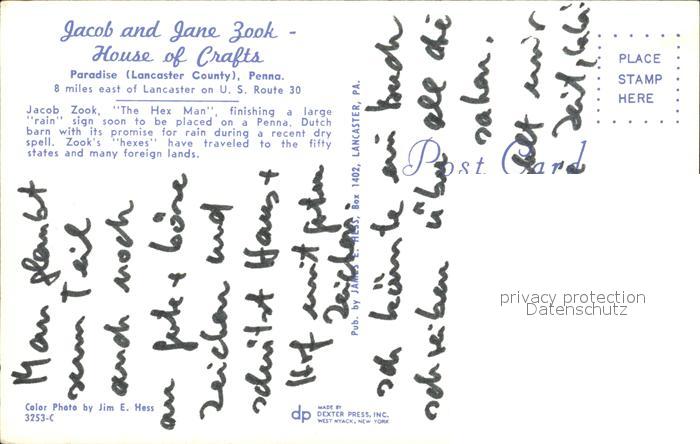 Jacob and Jane Zook -
House of Crafts
Paradise (Lancaster County), Penna.
8 miles east of Lancaster on U. S. Route 30
Jacob Zook, "The Hex Man", finishing a large
"rain" sign soon to be placed on a Penna. Dutch
barn with its promise for rain during a recent dry
spell. Zook's "hexes" have traveled to the fifty
states and many foreign lands.
Man glaubt
zum Teil
auch noch
an gute + böse
Zeichen und
schützt Haus +
Hof mit guten
Zeichen.
Ich könnte ein Buch
schreiben über all die
sahen.
fehlt mir
Zeit,
Pub. by JAMES E. HESS, Box 1402, LANCASTER, PA.
Post Card
PLACE
STAMP
HERE
privacy protection
Datenschutz
Color Photo by Jim E. Hess
3253-C
dp
MADE BY
DEXTER PRESS, INC.
WEST NYACK, NEW YORK